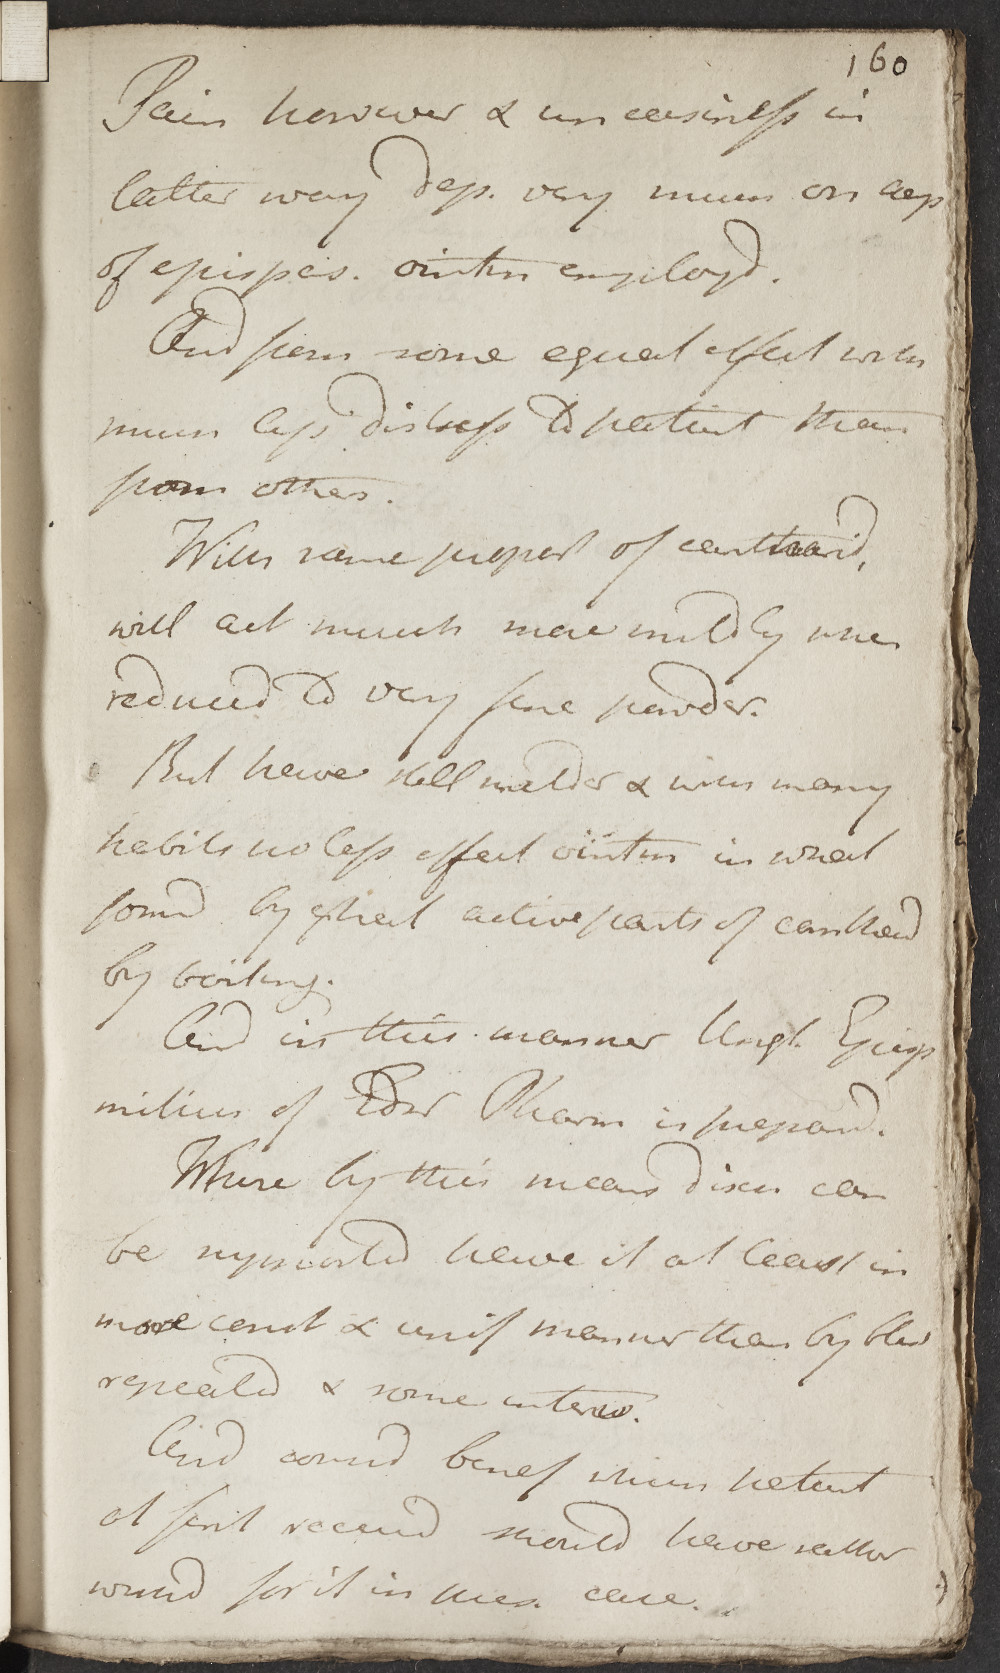 160
Pain however & uneasiness in
latter way dep. very much on
of epispas. ointm employd.
And from some equal effect with
much less distress to patient than
from others.
With same proport of cantharid,
will act much more mildly when
reduced to very fine powder.
But have still milder & with many
habits no less effect ointm in what
formd by extract active parts of canthad
by boiling.
And in this manner Ungt. Episp
mitius of Edin Pharm is prepard.
Where by this means disch can
be supported have it at least in
more const & unif manner than by blis
repeated & some interv.
And benef which patient
at first received should have rather
for it in pres. case.